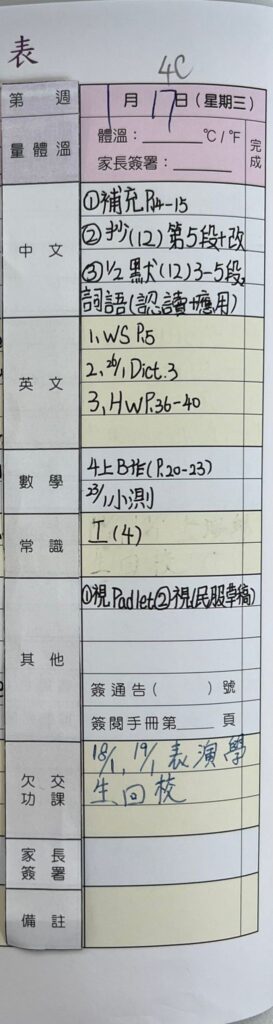 表
4C
第 週 1月17日(星期三)
量體溫 體溫:______°C/°F 完成
家長簽署:______
中文 ①補充P.14-15
②抄(12)第5段+改
③1/2默(12)3-5段,
詞語(認讀+應用)
英文 1, WS P.5
2, 26/1 Dict.3
3, HW P.36-40
數學 4上B作(P.20-23)
23/1小測
常識 I (4)
其他 ①視Padlet②視(民服草稿)
簽通告( )號
簽閱手冊第____頁
欠交功課 18/1, 19/1 表演學
生回校
家長簽署
備註